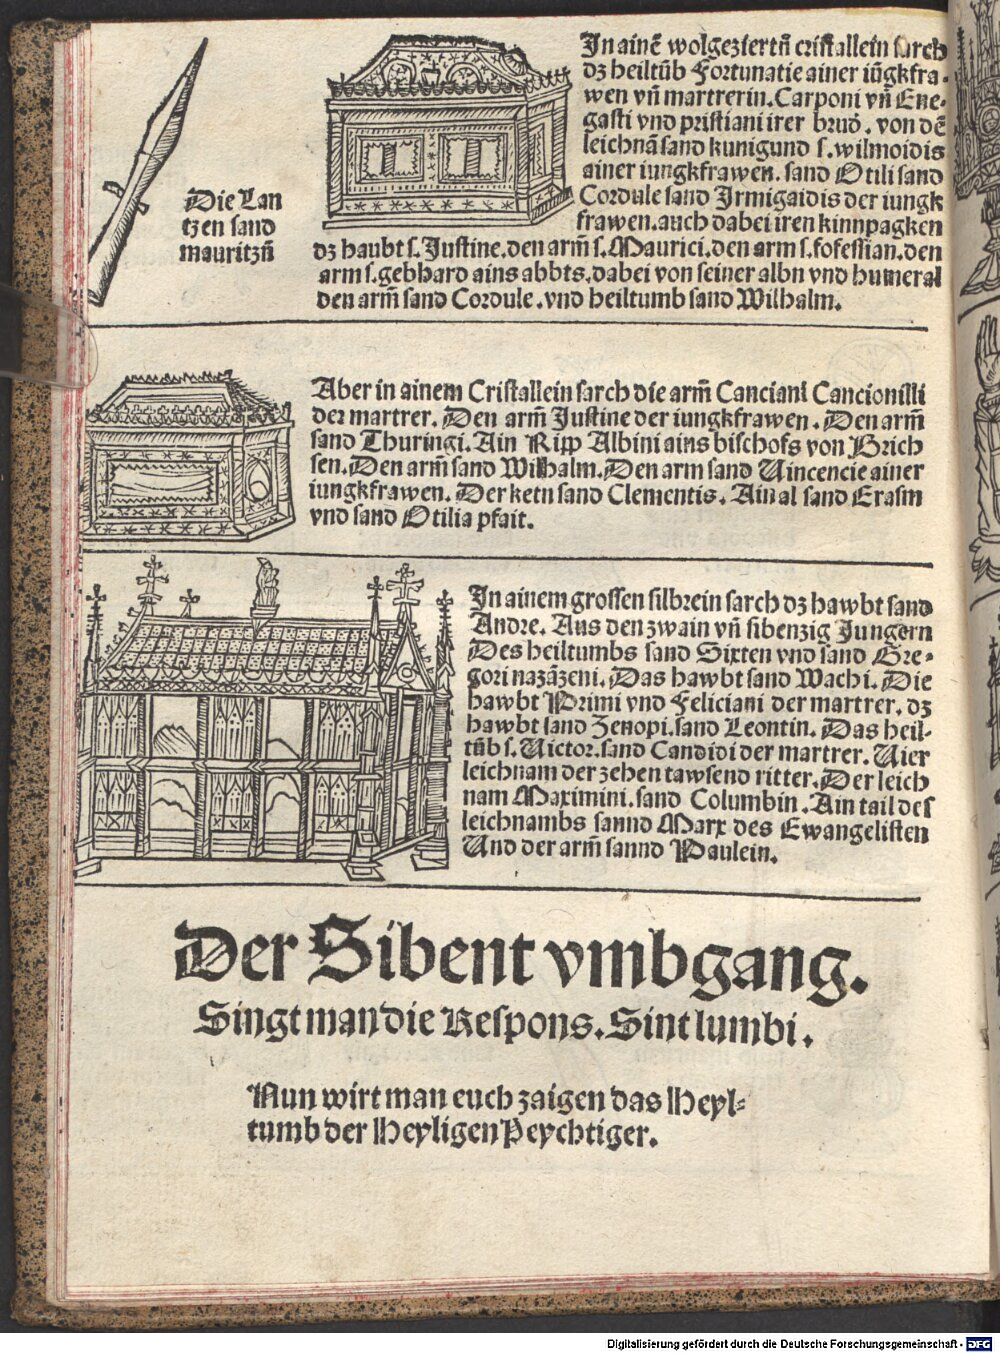 Die Lan
tzen sand
mauritzn̄
In ainē wolgeziertn̄ cristallein sarch
dz heiltūb Fortunatie ainer iūgkfra-
wen vn̄ martrerin. Carponi vn̄ Ene-
gasti vnd pristiani irer brud̓. von dē
leichnā sand kunigund s. wilmoidis
ainer iungkfrawen. sand Otili sand
Cordule sand Irmigaidis der iungk
frawen. auch dabei iren kinnpagken
dz haubt s. Justine. den arm̄ s. Maurici. den arm s. fofessian. den
arm s. gebhard ains abbts. dabei von seiner albn vnd humeral
den arm̄ sand Cordule. vnd heiltumb sand Wilhalm.
Aber in ainem Cristallein sarch die arm̄ Canciani Cancionilli
der martrer. Den arm̄ Justine der iungkfrawen. Den arm̄
sand Thuringi. Ain Ripp Albini ains bischofs von Brich
sen. Den arm̄ sand Wilhalm. Den arm sand Vincencie ainer
iungkfrawen. Der ketn sand Clementis. Ain al sand Erasm
vnd sand Otilia pfait.
In ainem grossen silbrein sarch dz hawbt sand
Andre. Aus den zwain vn̄ sibenzig Jungern
Des heiltumbs sand Sixten vnd sand Gre-
gori nazāzeni. Das hawbt sand Wachi. Die
hawbt Primi vnd Feliciani der martrer. dz
hawbt sand Zenopi. sand Leontin. Das heil-
tūb s. Victor. sand Candidi der martrer. Vier
leichnam der zehen tawsend ritter. Der leich
nam Maximini. sand Columbin. Ain tail des
leichnambs sannd Marx des Ewangelisten
Vnd der arm̄ sannd Paulein.
Der Sibent vmbgang.
Singt man die Respons. Sint lumbi.
Nun wirt man euch zaigen das Heyl-
tumb der Heyligen Peychtiger.
Digitalisierung gefördert durch die Deutsche Forschungsgemeinschaft - DFG